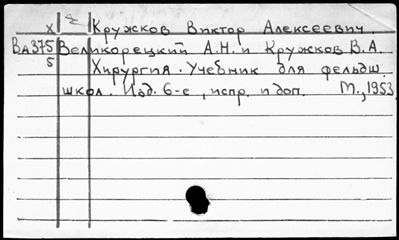 х Кружков Виктор Алексеевич
Ва375 Великорецкий А.Н. и Кружков В.А.
5 Хирургия. Учебник для фельдш.
школ. Изд. 6-е, испр. и доп. М., 1953